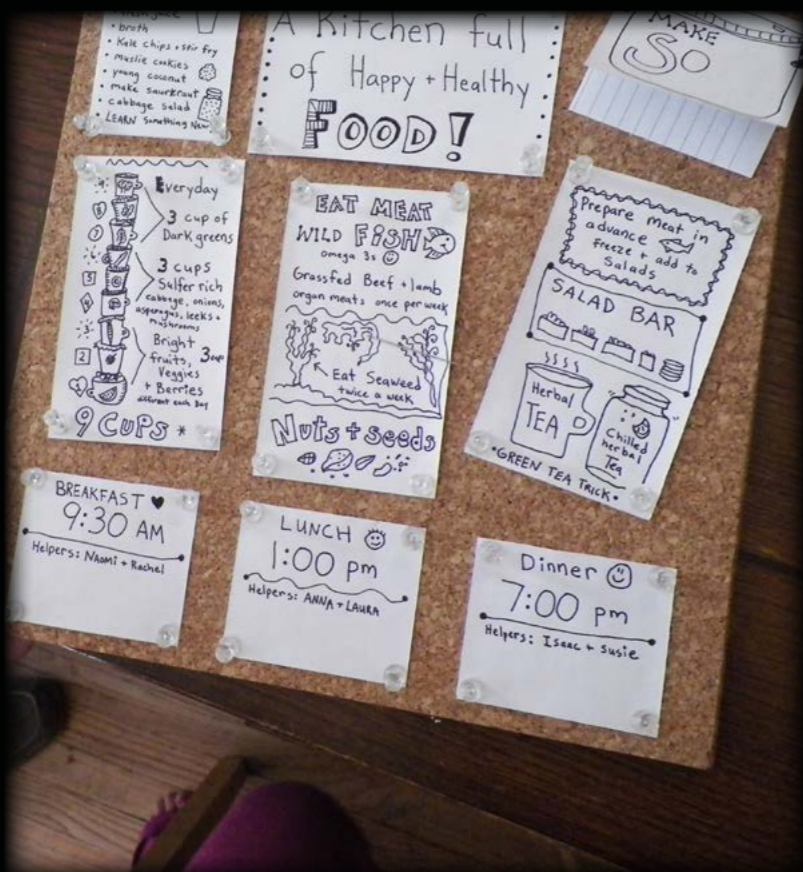 • broth
• Kale chips + stir fry
• muslie cookies
• young coconut
• make saurkraut
• cabbage salad
• LEARN Something New
A Kitchen full
of Happy + Healthy
FOOD!
MAKE
SO
Everyday
3 cup of
Dark greens
3 cups
Sulfer rich
cabbage, onions,
asperagus, leeks +
mushrooms
Bright
fruits, 3 cup
Veggies
+ Berries
different each Day
9
8
7
6
5
4
3
2
1
9 CUPS *
EAT MEAT
WILD FISH
omega 3s
Grassfed Beef + lamb
organ meats once per week
Eat Seaweed
twice a week
Nuts + seeds
Prepare meat in
advance
Freeze + add to
Salads
SALAD BAR
Herbal
TEA
Chilled
herbal
Tea
•GREEN TEA TRICK•
BREAKFAST
9:30 AM
Helpers: NAOMi + Rachel
LUNCH
1:00 pm
Helpers: ANNA + LAURA
Dinner
7:00 pm
Helpers: Isaac + Susie